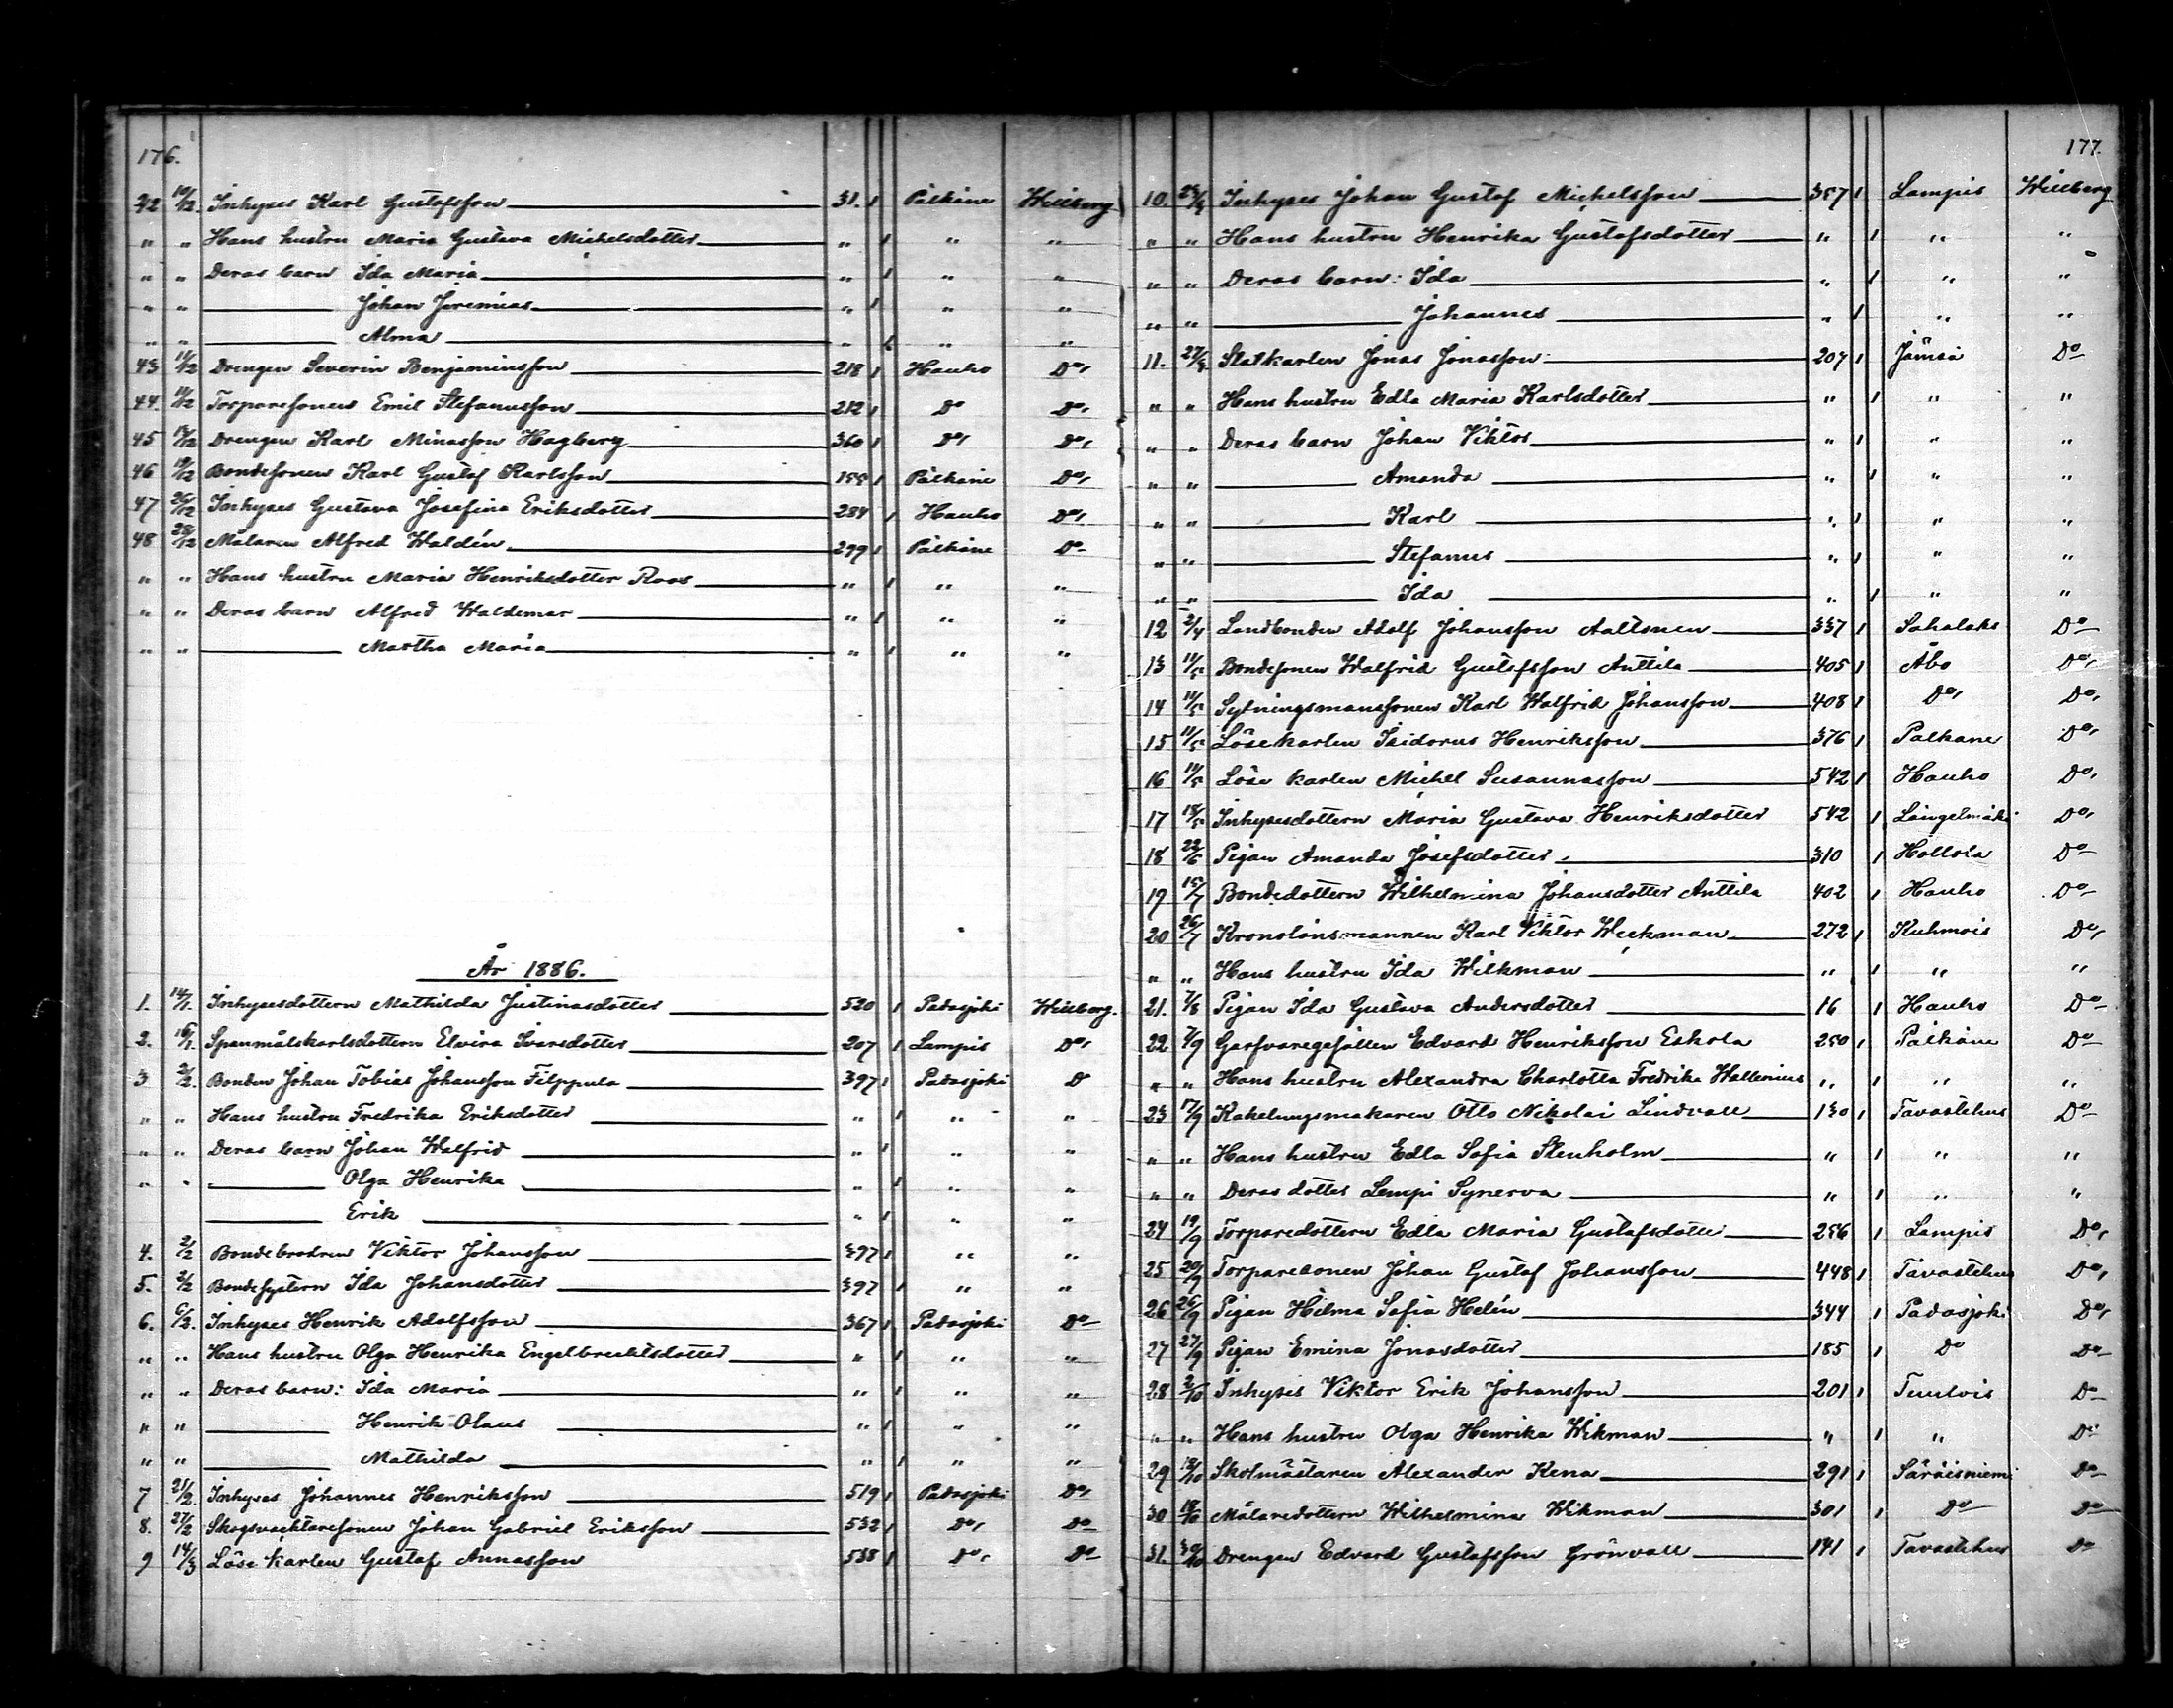 176.
42 10/12. Inhyses Karl Gustafsson 31. 1 Pälkäne Willberg
" " Hans hustru Maria Gustava Michelsdotter " 1 " "
" " Deras barn Ida Maria " 1 " "
" " Johan Jeremias " 1 " "
" " Alma " 1 " "
43 11/12 Drengen Severin Benjaminsson 218 1 Hauho Do,
44. 11/12 Torparesonen Emil Stefanusson 212 1 Do Do,
45 13/12 Drengen Karl Minasson Hagberg 360 1 Do, Do,
46 19/12 Bondesonen Karl Gustaf Karlsson 155 1 Pälkäne Do,
47 26/12 Inhyses Gustava Josefina Eriksdotter 284 1 Hauho Do,
48 28/12 Målaren Alfred Waldén 299 1 Pälkäne Do
" " Hans hustru Maria Henriksdotter Roos " 1 " "
" " Deras barn Alfred Waldemar " 1 " "
" " Martha Maria " 1 " "
År 1886.
1. 14/1. Inhysesdottern Mathilda Justinasdotter 520 1 Padasjoki Willberg.
2. 16/1. Spanmålskarlsdottern Elvira Ivarsdotter 207 1 Lampis Do,
3 2/2. Bonden Johan Tobias Johansson Filppula 397 1 Padasjoki D
" " Hans hustru Fredrika Eriksdotter " 1 " "
" " Deras barn Johan Walfrid " 1 " "
" " Olga Henrika " 1 " "
Erik " 1 " "
4. 2/2 Bondebrodren Viktor Johansson 397 1 " "
5. 2/2 Bondesystern Ida Johansdotter 397 1 " "
6. 6/2. Inhyses Henrik Adolfsson 367 1 Padasjoki Do
" " Hans hustru Olga Henrika Engelbrechtsdotter " 1 " "
" " Deras barn: Ida Maria " 1 " "
" " Henrik Olaus " 1 " "
" " Mathilda " 1 " "
7 21/2. Inhyses Johannes Henriksson 519 1 Padasjoki Do,
8. 27/2 Skogsvacktaresonen Johan Gabriel Eriksson 532 1 Do, Do
9 14/3 Löse karlen Gustaf Annasson 538 1 Do, Do
177.
10. Inhyses Johan Gustaf Michelsson 357 1 Lampis Willberg
" " Hans hustru Henrika Gustafsdotter " 1 " "
" " Deras barn: Ida " 1 " "
" " Johannes " 1 " "
11. 27/3 Statkarlen Jonas Jonasson 207 1 Jämsä Do
" " Hans hustru Edla Maria Karlsdotter " 1 " "
" " Deras barn Johan Viktor " 1 " "
" " Amanda " 1 " "
" " Karl " 1 " "
" " Stefanus " 1 " "
" " Ida " 1 " "
12 2/4 Landbonden Adolf Johansson Aaltonen 337 1 Sahalaks Do
13 11/5 Bondesonen Walfrid Gustafsson Anttila 405 1 Åbo Do,
14 11/5 Sytningsmanssonen Karl Walfrid Johansson 408 1 Do, Do,
15 11/5 Lösekarlen Isidorus Henriksson 376 1 Pälkäne Do,
16 11/5 Löse karlen Michel Susannasson 542 1 Hauho Do,
17 18/5 Inhysesdottern Maria Gustava Henriksdotter 542 1 Längelmäki Do,
18 22/6 Pigan Amanda Josefsdotter 310 1 Hollola Do
19 15/7 Bondedottern Wilhelmina Johansdotter Anttila 402 1 Hauho Do
20 26/7 Kronolänsmannen Karl Viktor Weckman 272 1 Kuhmois Do,
" " Hans hustru Ida Wilkman " 1 " "
21. 7/8 Pigan Ida Gustava Andersdotter 16 1 Hauho Do
22 7/9 Garfvaregesällen Edvard Henriksson Eskola 250 1 Pälkäne Do
" " Hans hustru Alexandra Charlotta Fredrika Wallenius " 1 " "
23 17/9 Kakelungsmakaren Otto Nikolai Lindvall 130 1 Tavastehus Do
" " Hans hustru Edla Sofia Stenholm " 1 " "
" " Deras dotter Lempi Synerva " 1 " "
24 19/9 Torparedottern Edla Maria Gustafsdotter 256 1 Lampis Do,
25 20/9 Torparesonen Johan Gustaf Johansson 448 1 Tavastehus Do,
26 26/9 Pigan Hilma Sofia Helén 344 1 Padasjoki Do,
27 27/9 Pigan Emina Jonasdotter 185 1 Do Do
28 2/10 Inhyses Viktor Erik Johansson 201 1 Tuulois Do
" " Hans hustru Olga Henrika Wikman " 1 " Do
29 13/10 Skolmästaren Alexander Kena 291 1 Säräisniemi Do
30 18/10 Målaredottern Wilhelmina Wikman 301 1 Do Do
31. 30/10 Drengen Edvard Gustafsson Grönvall 141 1 Tavastehus Do